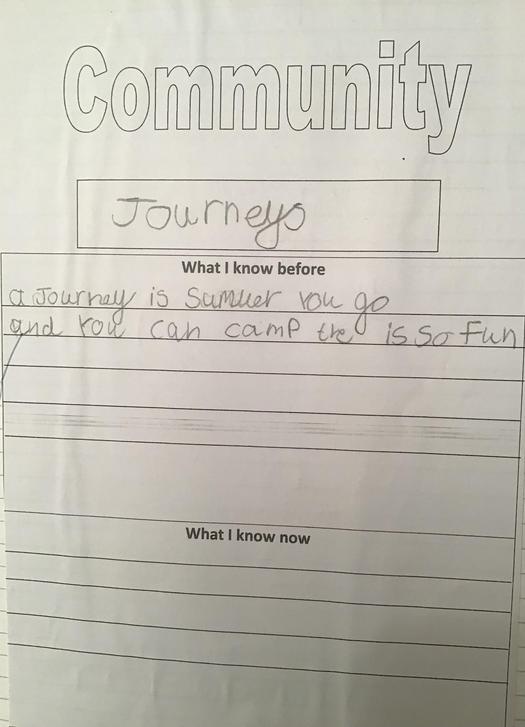 Community
Journeys
What I know before
a Journey is Sumwer You go
and You can camp the is so Fun
What I know now